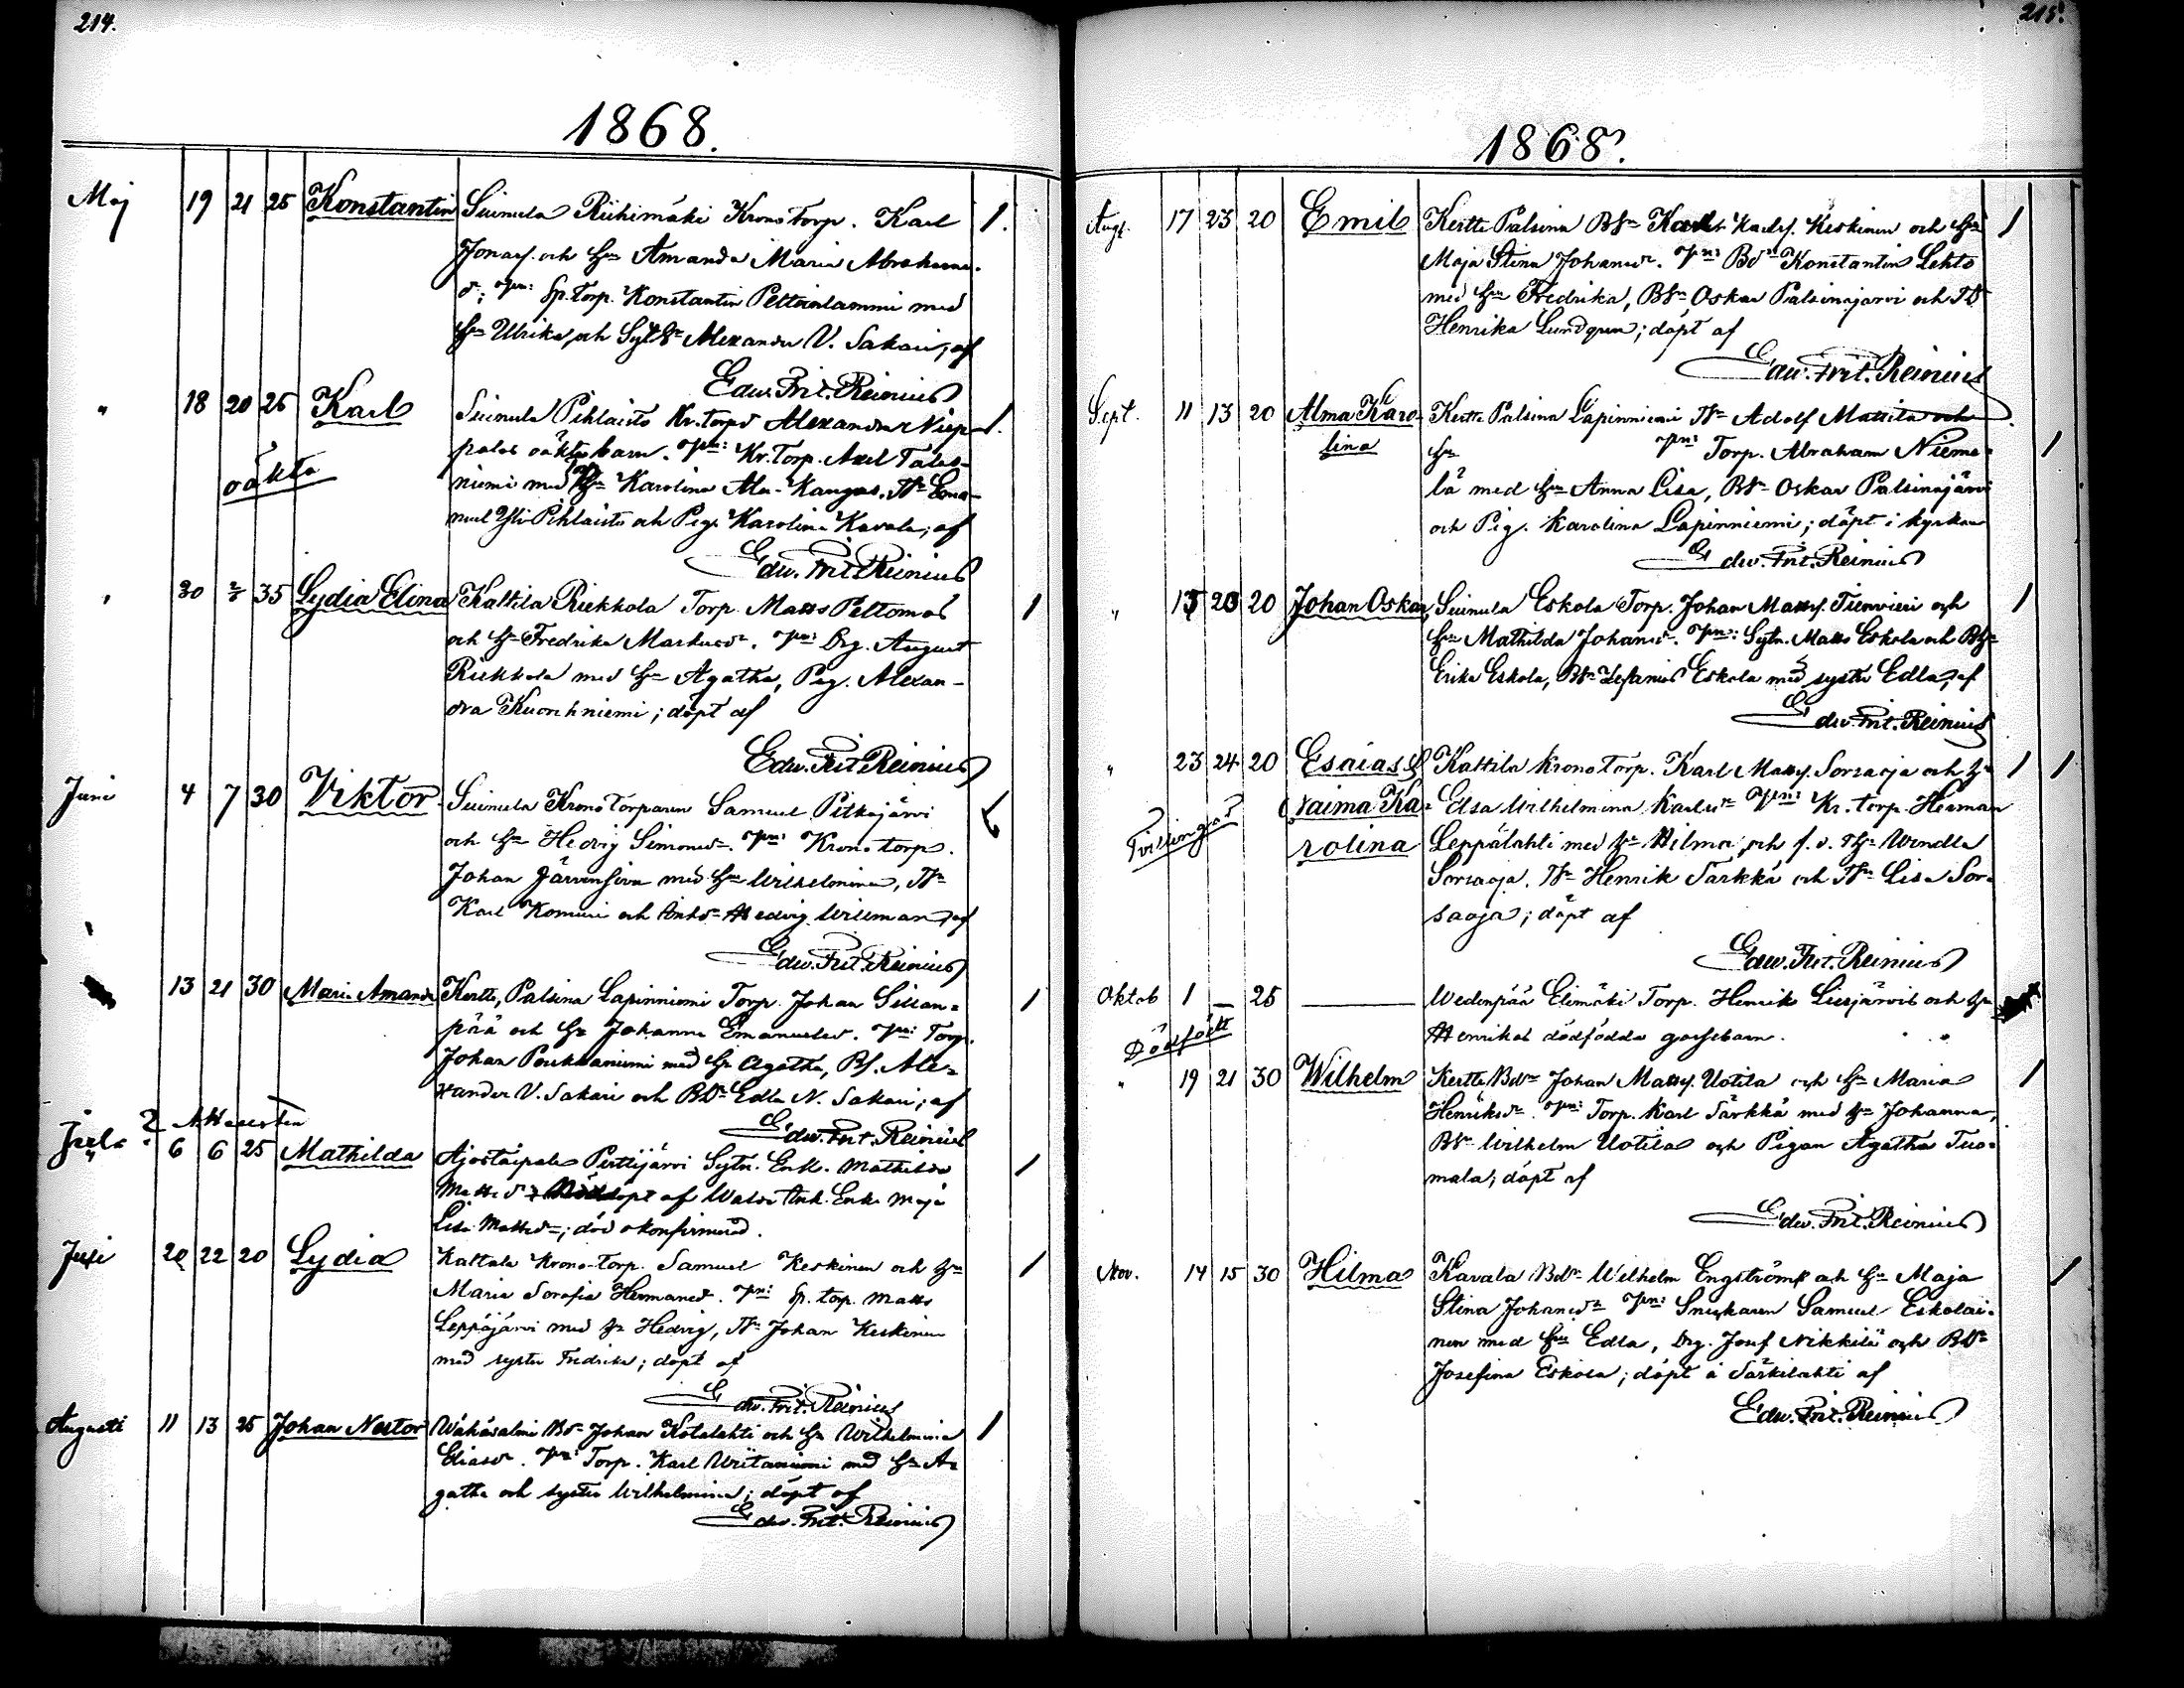 214.
1868.
Maj 19 21 25 Konstantin Suinula Riihimäki Kronotorp. Karl 1.
Jonass. och Hu Amanda Maria Abrahams-
d; Sp. torp. Konstantin Peltoinlammi med
Hu Ulrika, och Alexander V. Sakari; af
Edw. Frit. Reinius
" 18 20 25 Karl Suinula Pihlaisto Kr. torpd Alexandra Niep- 1.
oäkta palas oäkta barn. Kr. Torp. Axel
niemi med Hu Karolina Ala-Kangas, Ema-
nuel Yli-Pihlaisto och Pig. Karolina Kavala; af
Edw. Frit. Reinius
" 30 2/6 35 Lydia Elina Kattila Riekkola Torp. Matts Peltomas 1
och Hu Fredrika Markusdr. Drg. August
Riekkola med Hu Agatha, Pig. Alexan-
dra; döpt af
Edw. Frit Reinius
Juni 4 7 30 Viktor Suinula Kronotorparen Samuel Pitkäjärvi
och Hu Hedvig Simonsdr. Kronotorp.
Johan med Hu Wilhelmina,
Karl och Hedvig Willman, af
Edw. Frit. Reinius
13 21 30 Maria Amanda Kertte, Palsina Lapinniemi Torp. Johan Sillan- 1
pää och Hu Johanna Emanuelsd. Torp.
Johan med Hu Agatha, Ale-
xander V. Sakari och Edla N. Sakari; af
Edw. Frit. Reinius
? Attesten
" 6 6 25 Mathilda Ajostaipale Perttijärvi Sytn. Enk. Mathilda 1
Mattsd döpt af Enk. Maja
Lisa Mattsdr; död okonfirmerad.
Juli 20 22 20 Lydia Kattala Krono-torp. Samuel Keskinen och Hu 1
Maria Serafia Hermansd. Sp. torp. Matts
Leppäjärvi med Hu Hedvig, Johan Keskinen
med syster Fredrika; döpt af
Edw. Frit. Reinius
Augusti 11 13 25 Johan Nestor Wähäsalmi Johan Kotalahti och Hu Wilhelmina 1
Eliasdr. Torp. Karl med Hu A-
gatha och syster Wilhelmina; döpt af
Edw. Frit. Reinius
215.
1868.
Aug. 17 23 20 Emil Kertte Palsina Karl Karlss. Keskinen och Hu 1
Maja Stina Johansdr. Konstantin Lehto
med Hu Fredrika, Oskar Palsinajärvi och
Henrika Lundgren; döpt af
Edw. Frit. Reinius
Sept. 11 13 20 Alma Karo- Kertte Palsina Lapinniemi Adolf Mattila och
lina Hu Torp. Abraham Nieme- 1
lä med Hu Anna Lisa, Oskar Palsinajärvi
och Pig. Karolina Lapinniemi; döpt i kyrkan
Edw. Frit. Reinius
" 20 20 Johan Oskar, Suinula Eskola Torp. Johan Matts. och 1
Hu Mathilda Johansd. Sytn. Matts Eskola och
Erika Eskola, Eskola med syster Edla; af
Edw. Frit. Reinius
" 23 24 20 Esaias & Kattila Kronotorp. Karl Matts. Sorsaoja och Hu 1 1
Tvillingar Naima Ka- Elsa Wilhelmina Karlsdr. Kr. torp. Herman
rolina Leppälahti med Hu Hilma, och f. d. Wendla
Sorsaoja. Henrik Särkkä och Lisa Sor-
saoja; döpt af
Edw. Frit. Reinius
Oktob 1 — 25 — Wedenpää Elimäki Torp. Henrik Liesjärvis och Hu
Dödfödt Henrikas dödfödda gossebarn.
" 19 21 30 Wilhelm Kertte Johan Matts. Uotila och Hu Maria 1
Henriksdr. Torp. Karl Särkkä med Hu Johanna,
Wilhelm Uotila och Pigan Agatha Tuo-
mala; döpt af
Edw. Frit. Reinius
Nov. 14 15 30 Hilma Kavala Wilhelm Engström och Hu Maja 1
Stina Johansdr. Snickaren Samuel Eskolai-
nen med Hu Edla, Drg. Josef Nikkilä och
Josefina Eskola; döpt å Särkilahti af
Edw. Frit. Reinius